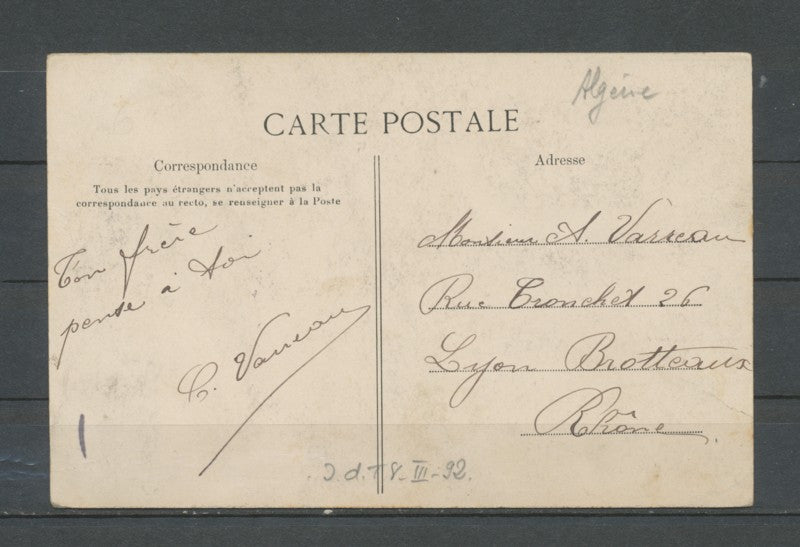 Algérie
CARTE POSTALE
Correspondance
Tous les pays étrangers n'acceptent pas la
correspondance au recto, se renseigner à la Poste
Ton frère
pense à toi
C. Varreau
Adresse
Monsieur A. Varreau
Rue Tronchet 26
Lyon Brotteaux
Rhône
J.d.T 8-III-92.